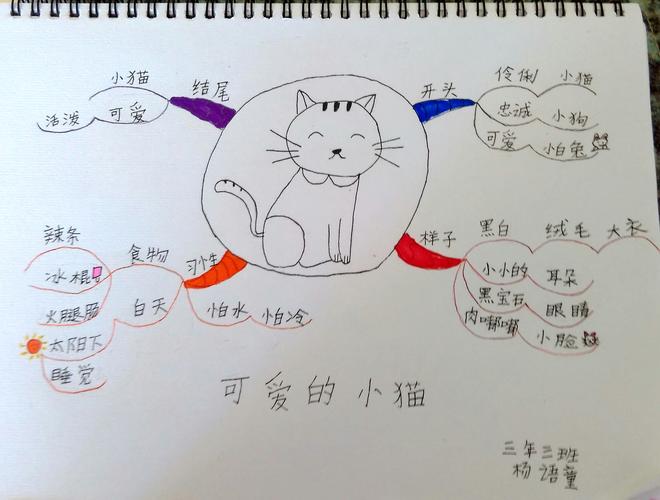 结尾
小猫
可爱
活泼
开头
伶俐 小猫
忠诚 小狗
可爱 小白兔
样子
黑白 绒毛 大衣
小小的 耳朵
黑宝石 眼睛
肉嘟嘟 小脸
习性
食物
辣条
冰棍
火腿肠
白天
太阳下
睡觉
怕水 怕冷
可爱的小猫
三年三班
杨语童